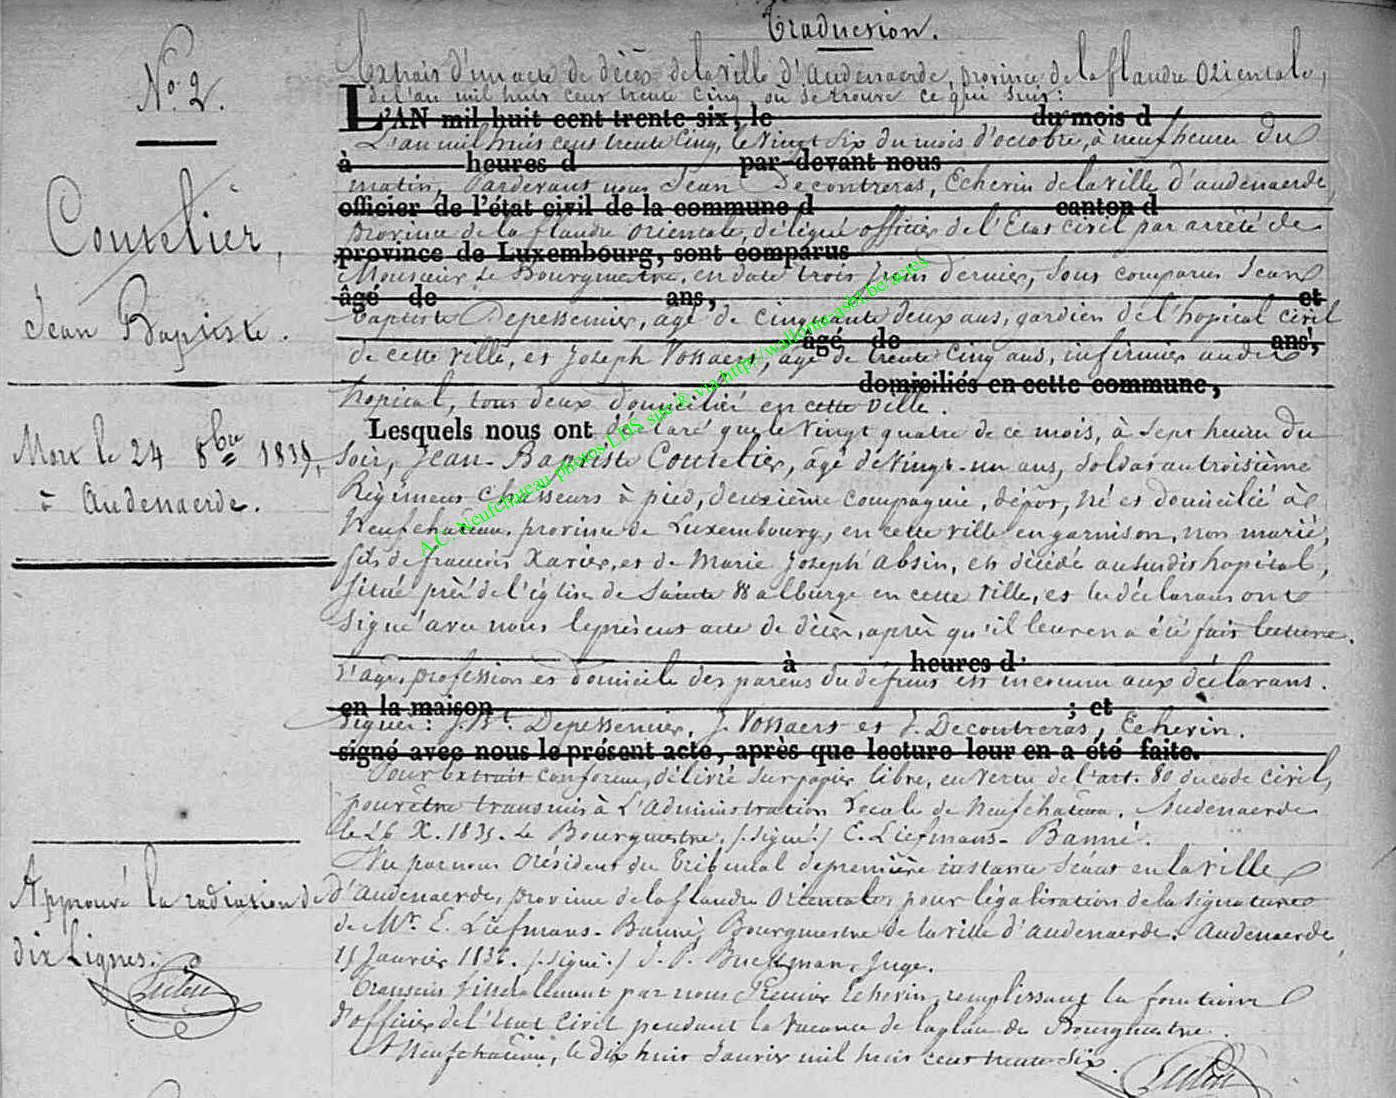 Traduction.
N° 2.
Coutelier,
Jean Baptiste.
Mort le 24 8bre 1835,
à Audenaerde.
Approuvé la radiation de
dix Lignes.
Extrait d'un acte de décès de la ville d'Audenaerde, province de la flandre Orientale,
de l'an mil huit cent trente cinq où se trouve ce qui suit :
L'AN mil huit cent trente six, le du mois d
L'an mil huit cent trente cinq, le vingt six du mois d'octobre, à neuf heures du
à heures d par-devant nous
matin, Pardevant nous Jean Decontreras, Echevin de la ville d'audenaerde,
officier de l'état civil de la commune d canton d
province de la flandre orientale, délégué officier de l'Etat civil par arrêté de
province de Luxembourg, sont comparus
Monsieur le Bourgmestre, en date trois Juin dernier, sont comparus Jean
âgé de ans, et
Baptiste Depessemier, âgé de cinquante deux ans, gardien de l'hopital civil
âgé de ans,
de cette ville, et Joseph Vossaert, âgé de trente cinq ans, infirmier audit
domiciliés en cette commune,
hopital, tous deux domicilié en cette ville.
Lesquels nous ont déclaré que le vingt quatre de ce mois, à sept heures du
soir, Jean-Baptiste Coutelier, âgé de vingt-un ans, soldat au troisième
Régiment Chasseurs à pied, deuxième compagnie, dépôt, né et domicilié à
Neufchateau, province de Luxembourg, en cette ville en garnison, non marié,
fils de francois Xavier, et de Marie Joseph absin, est décédé au susdit hopital,
situé près de l'église de Sainte Walburge en cette ville, et les déclarans ont
signé avec nous le présent acte de décès, après qu'il leur en a été fait lecture.
à heures d
L'age, profession et domicile des parens du défunt est inconnu aux déclarans.
en la maison ; et
Signé : J. Bt. Depessemier, J. Vossaert et J. Decontreras, Echevin.
signé avec nous le présent acte, après que lecture leur en a été faite.
Pour Extrait conforme, délivré sur papier libre, en vertu de l'art. 80 du code civil,
pour être transmis à L'Administration Locale de Neufchateau. Audenaerde
le 26 X. 1835. Le Bourgmestre, /signé./ E. Liefmans-Banné.
Vu par nous Président du Tribunal de première instance séant en la ville
d'Audenaerde, province de la flandre Orientale, pour légalisation de la signature
de Mr. E. Liefmans-Banné, Bourgmestre de la ville d'audenaerde. Audenaerde,
Janvier /signé./ Juge.
Transcrit littéralement par nous Premier Echevin, remplissant la fonction
d'officier de l'Etat Civil pendant la vacance de la place de Bourgmestre.
A Neufchateau, le dix huit Janvier mil huit cent trente six.
A.C. Neufchateau photos LDS site & via http://wallonica.asbl.be/actes